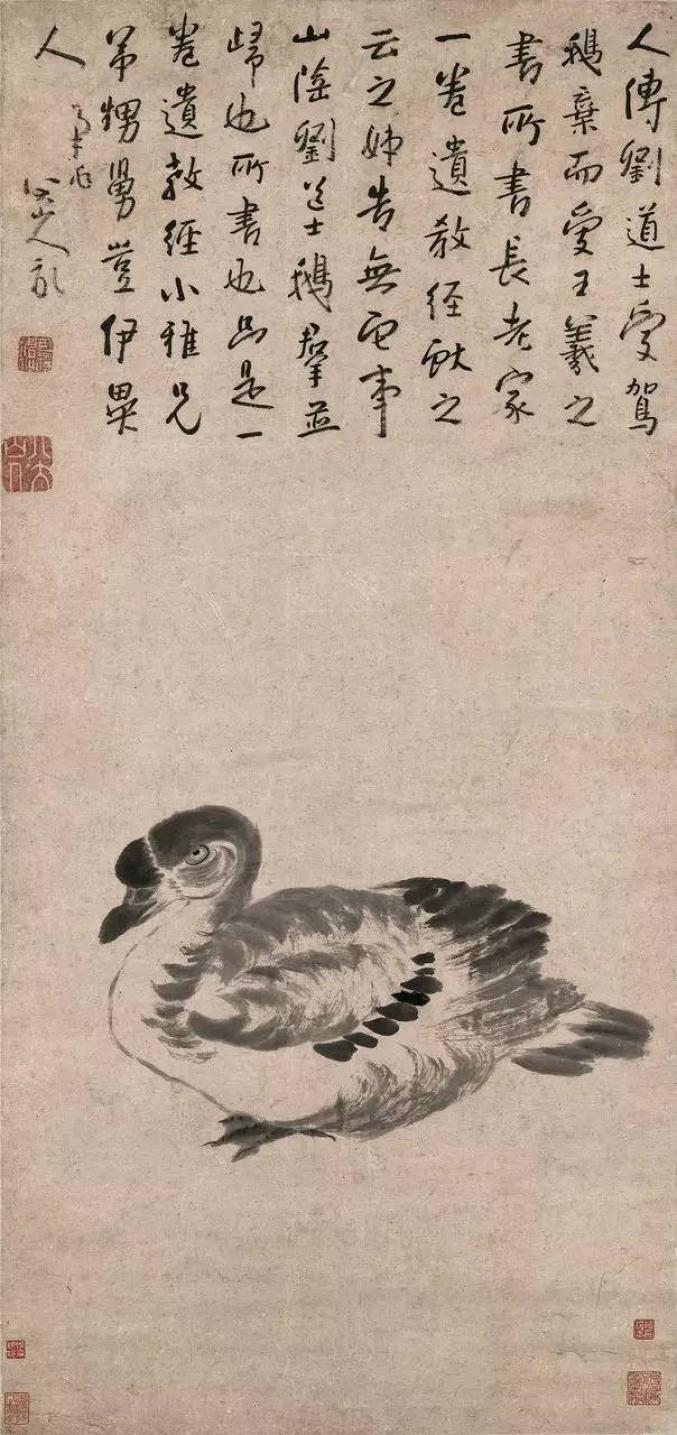 人傳劉道士愛駕
鵝群而愛王羲之
書所書長老家
一卷遺教經獻之
云之姊告無它事
山陰劉道士鵝群並
歸也所書也只是一
卷遺教經小雅兄
弟甥舅豈伊異
人
八大山人